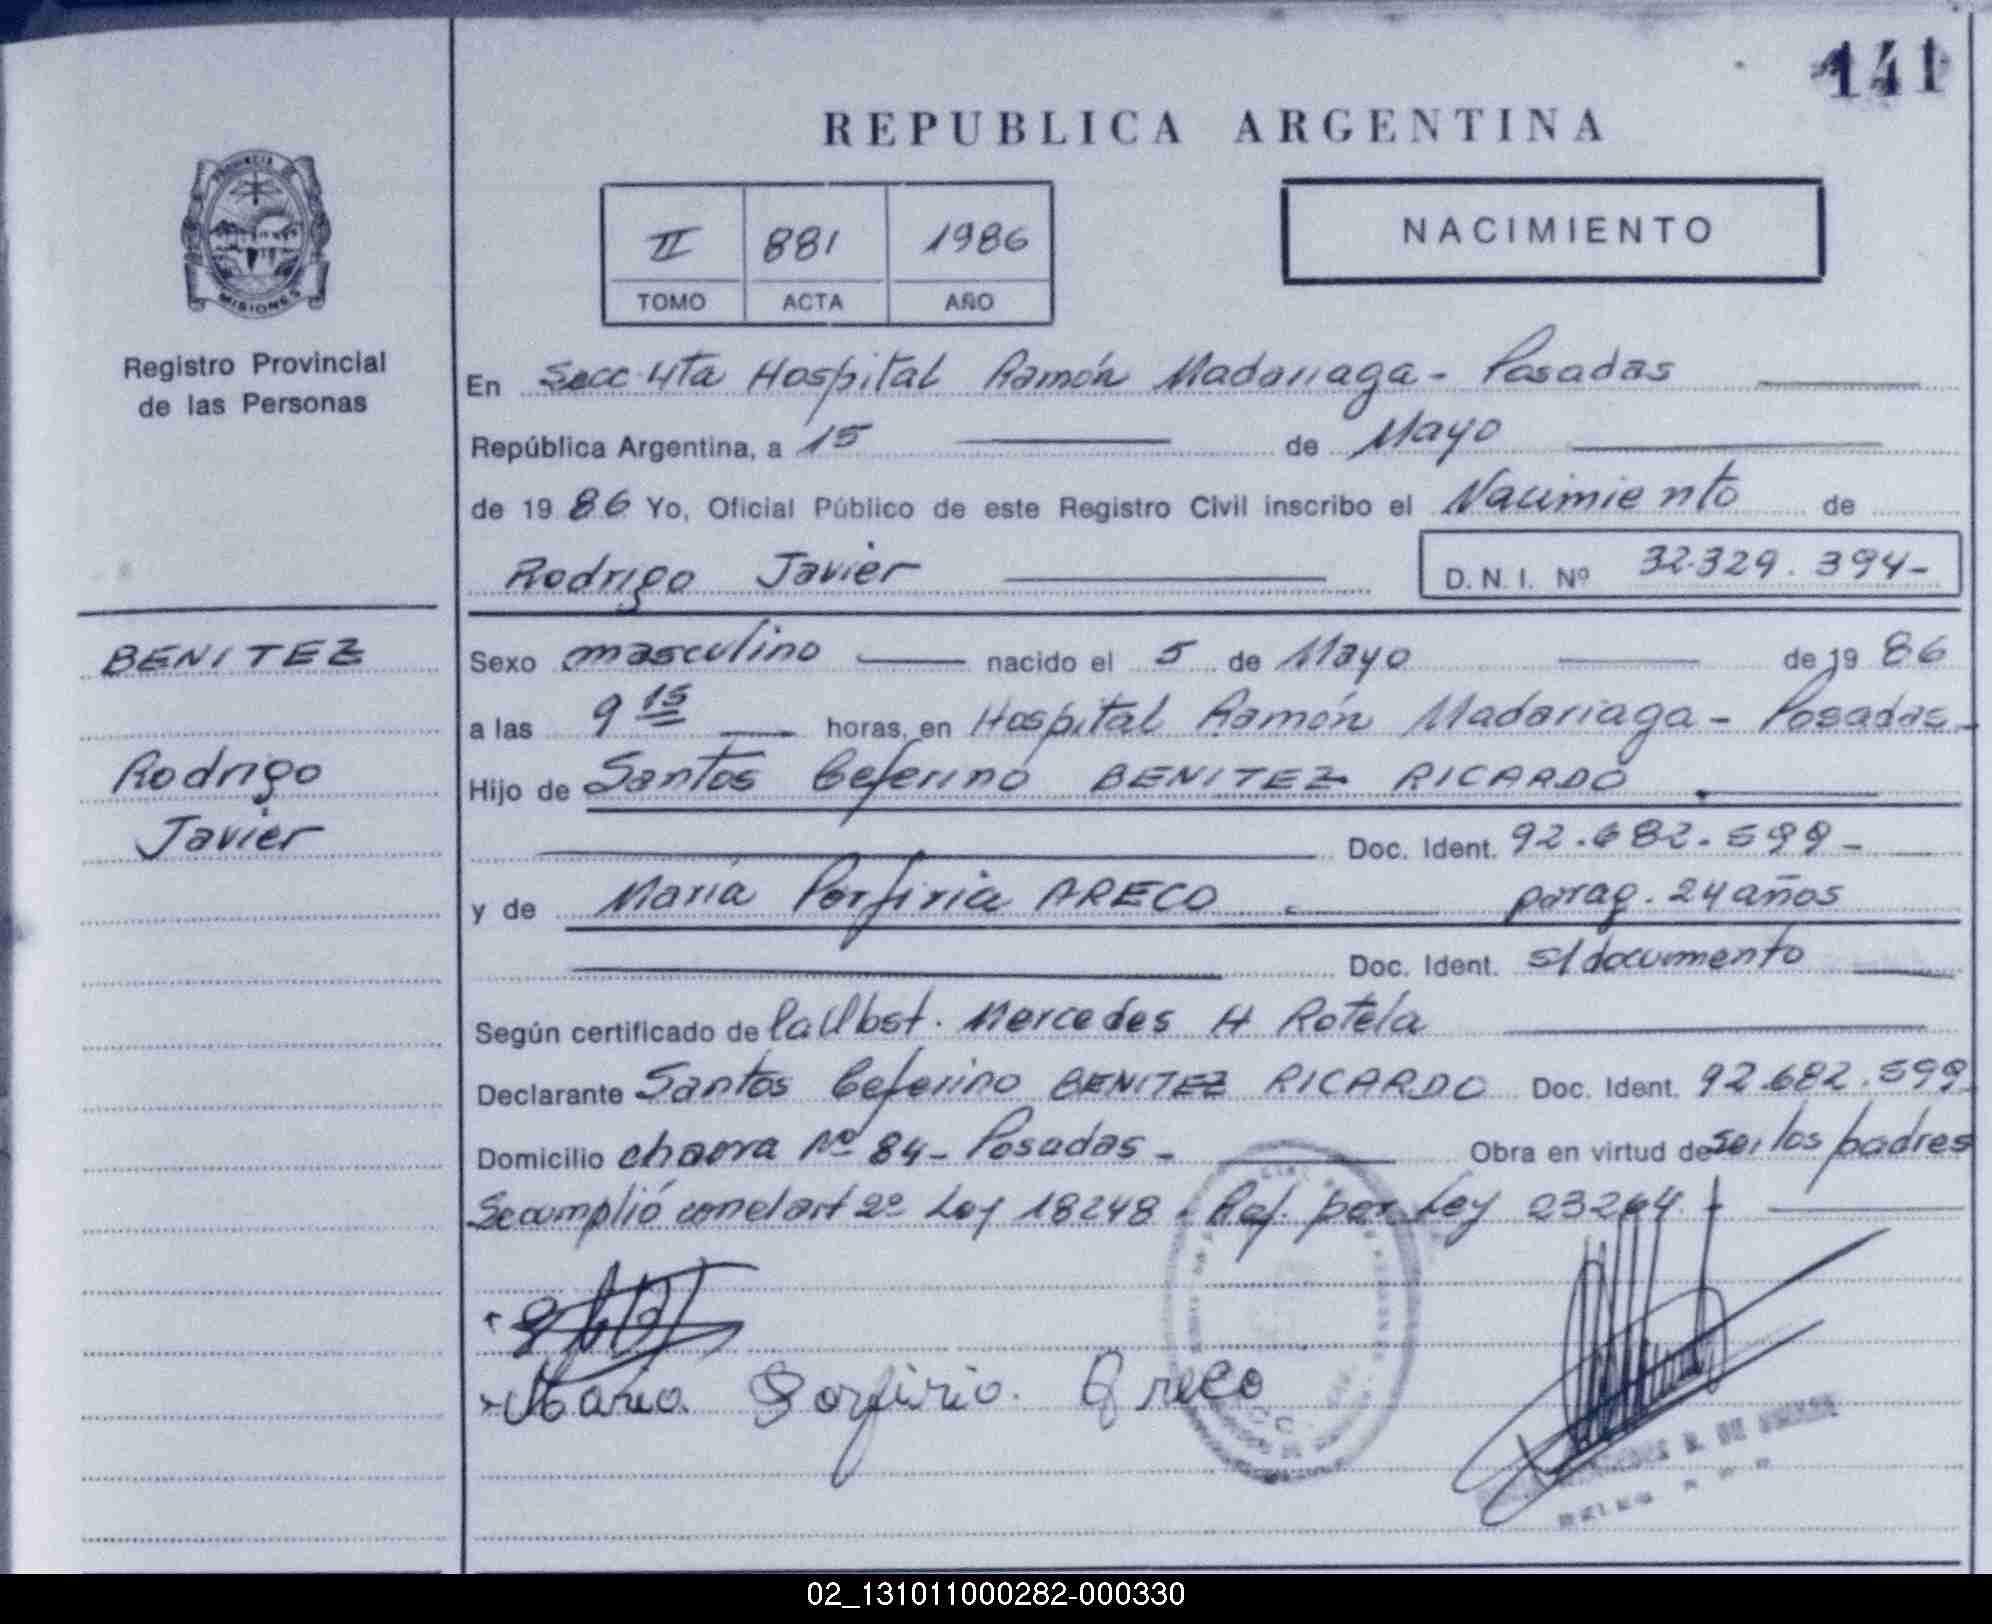 141
REPUBLICA ARGENTINA
II 881 1986
TOMO ACTA AÑO
NACIMIENTO
MISIONES
Registro Provincial
de las Personas
En Secc 4ta Hospital Ramón Madariaga - Posadas
República Argentina, a 15 de Mayo
de 19 86 Yo, Oficial Público de este Registro Civil inscribo el Nacimiento de
Rodrigo Javier D.N.I. Nº 32.329.394-
BENITEZ
Rodrigo
Javier
Sexo masculino nacido el 5 de Mayo de 19 86
a las 9 15 horas, en Hospital Ramón Madariaga - Posadas-
Hijo de Santos Ceferino BENITEZ RICARDO
Doc. Ident. 92.682.599-
y de María Porfiria ARECO parag. 24 años
Doc. Ident. s/documento
Según certificado de la Obst. Mercedes H Rotela
Declarante Santos Ceferino BENITEZ RICARDO Doc. Ident. 92.682.599
Domicilio chacra Nº 84- Posadas- Obra en virtud de ser los padres
Se cumplió con el art 2º Ley 18248 - Ref. por Ley 23264
Maria Porfiria Areco
02_131011000282-000330